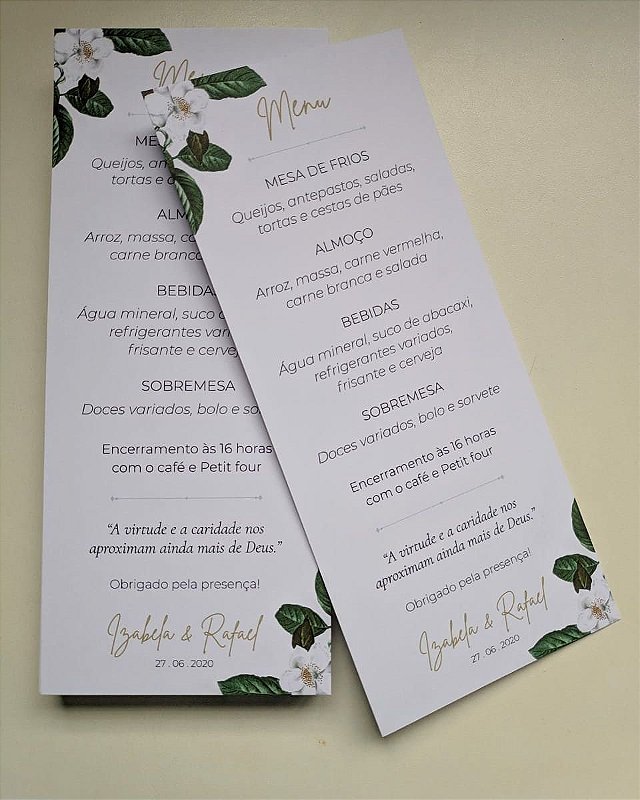 Me
ME
Queijos, an
tortas e
ALM
Arroz, massa, ca
carne branca
BEBIDA
Água mineral, suco
refrigerantes vari
frisante e cerveja
SOBREMESA
Doces variados, bolo e so
Encerramento às 16 horas
com o café e Petit four
“A virtude e a caridade nos
aproximam ainda mais de Deus.”
Obrigado pela presença!
Izabela & Rafael
27 . 06 . 2020
Menu
MESA DE FRIOS
Queijos, antepastos, saladas,
tortas e cestas de pães
ALMOÇO
Arroz, massa, carne vermelha,
carne branca e salada
BEBIDAS
Água mineral, suco de abacaxi,
refrigerantes variados,
frisante e cerveja
SOBREMESA
Doces variados, bolo e sorvete
Encerramento às 16 horas
com o café e Petit four
“A virtude e a caridade nos
aproximam ainda mais de Deus.”
Obrigado pela presença!
Izabela & Rafael
27 . 06 . 2020